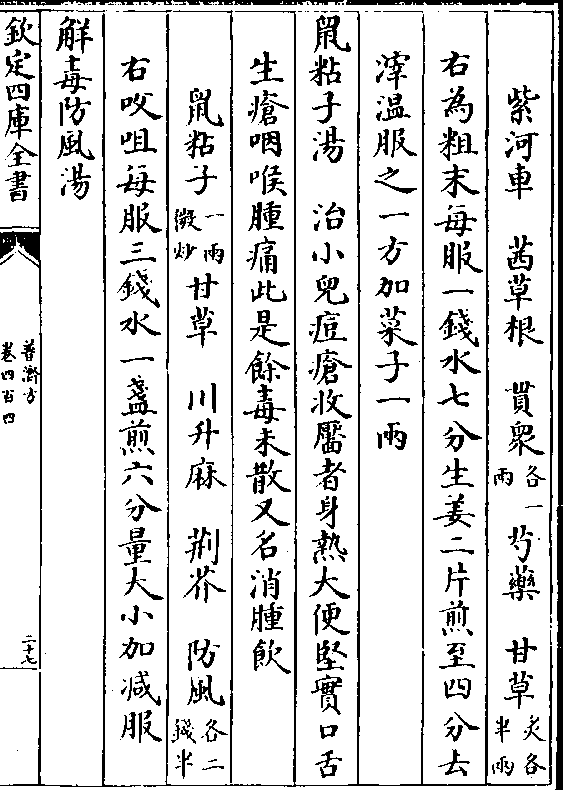 紫河車　茜草根　貫衆各一兩　芍藥　甘草炙各半兩
右為粗末每服一錢水七分生姜二片煎至四分去
滓温服之一方加菜子一兩
鼠粘子湯　治小兒痘瘡收靨者身熱大便堅實口舌
生瘡咽喉腫痛此是餘毒未散又名消腫飲
鼠粘子一兩微炒　甘草　川升麻　荆芥　防風各二錢半
右㕮咀每服三錢水一盞煎六分量大小加减服
解毒防風湯
欽定四庫全書
普濟方
卷四百四
二十七